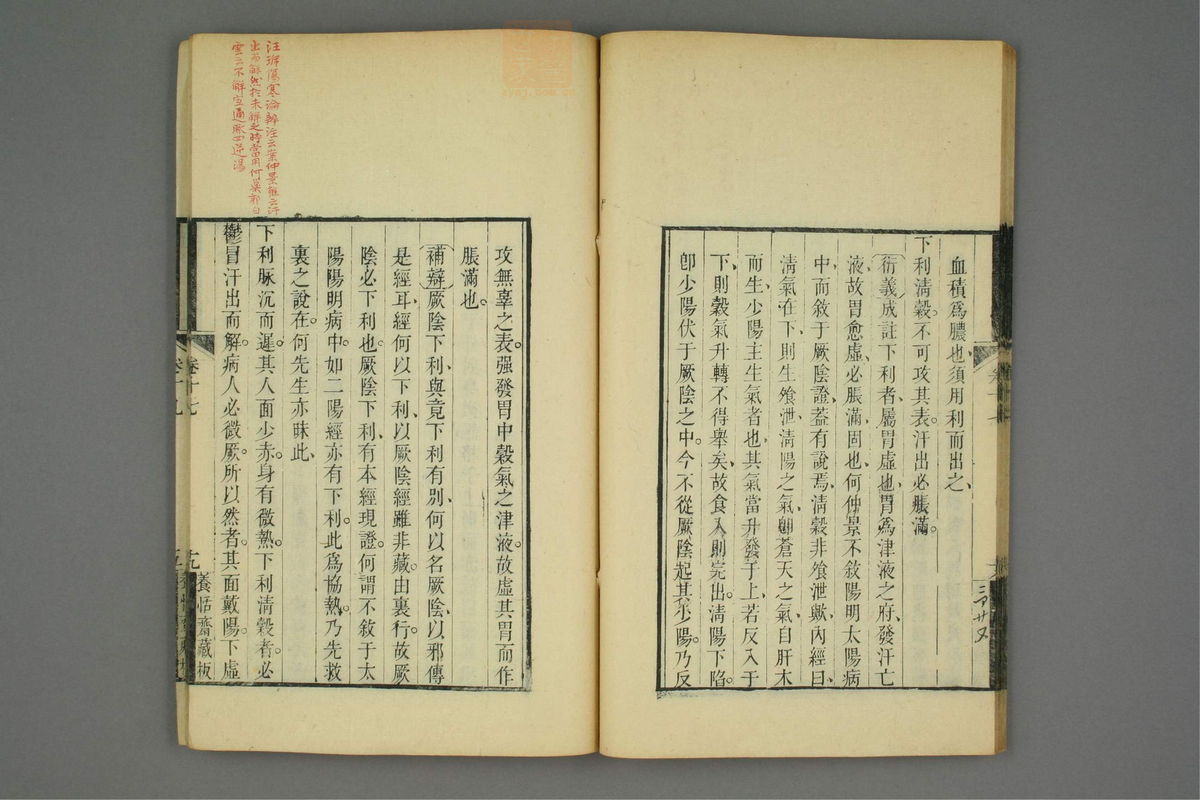 血積爲膿也須用利而出之
下利淸穀。不可攻其表。汗出必脹滿。
衍義成註下利者屬胃虛也胃爲津液之府發汗亡
液故胃愈虛必脹滿固也何仲景不敘陽明太陽病
中而敘于厥陰證葢有說焉淸穀非飧泄歟內經曰
淸氣在下則生飧泄淸陽之氣卽蒼天之氣自肝木
而生少陽主生氣者也其氣當升發于上若反入于
下則穀氣升轉不得舉矣故食入則完出。淸陽下陷。
卽少陽伏于厥陰之中。今不從厥陰起其少陽。乃反
攻無辜之表。强發胃中穀氣之津液。故虛其胃而作
脹滿也。
補辯厥陰下利與竟下利有別何以名厥陰以邪傳
是經耳經何以下利以厥陰經雖非藏。由裏行。故厥
陰必下利也。厥陰下利有本經現證。何謂不敘于太
陽陽明病中。如二陽經亦有下利。此爲協熱。乃先救
裏之說在。何先生亦昧此
下利脉沉而遲。其人面少赤。身有微熱。下利淸穀者。必
鬱冒汗出而解。病人必微厥。所以然者。其面戴陽。下虛
卷十七
養恬齋藏板
汪琥傷寒論辯注云葉仲景雖云汗
出而解然於未解之時當用何藥郭白
雲云不解宜通脉四逆湯